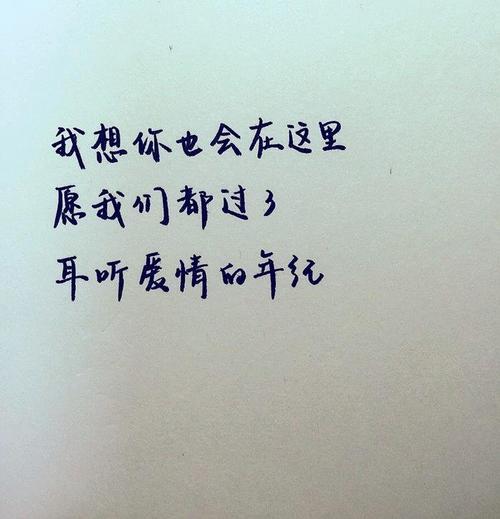 我想你也会在这里
愿我们都过了
耳听爱情的年纪